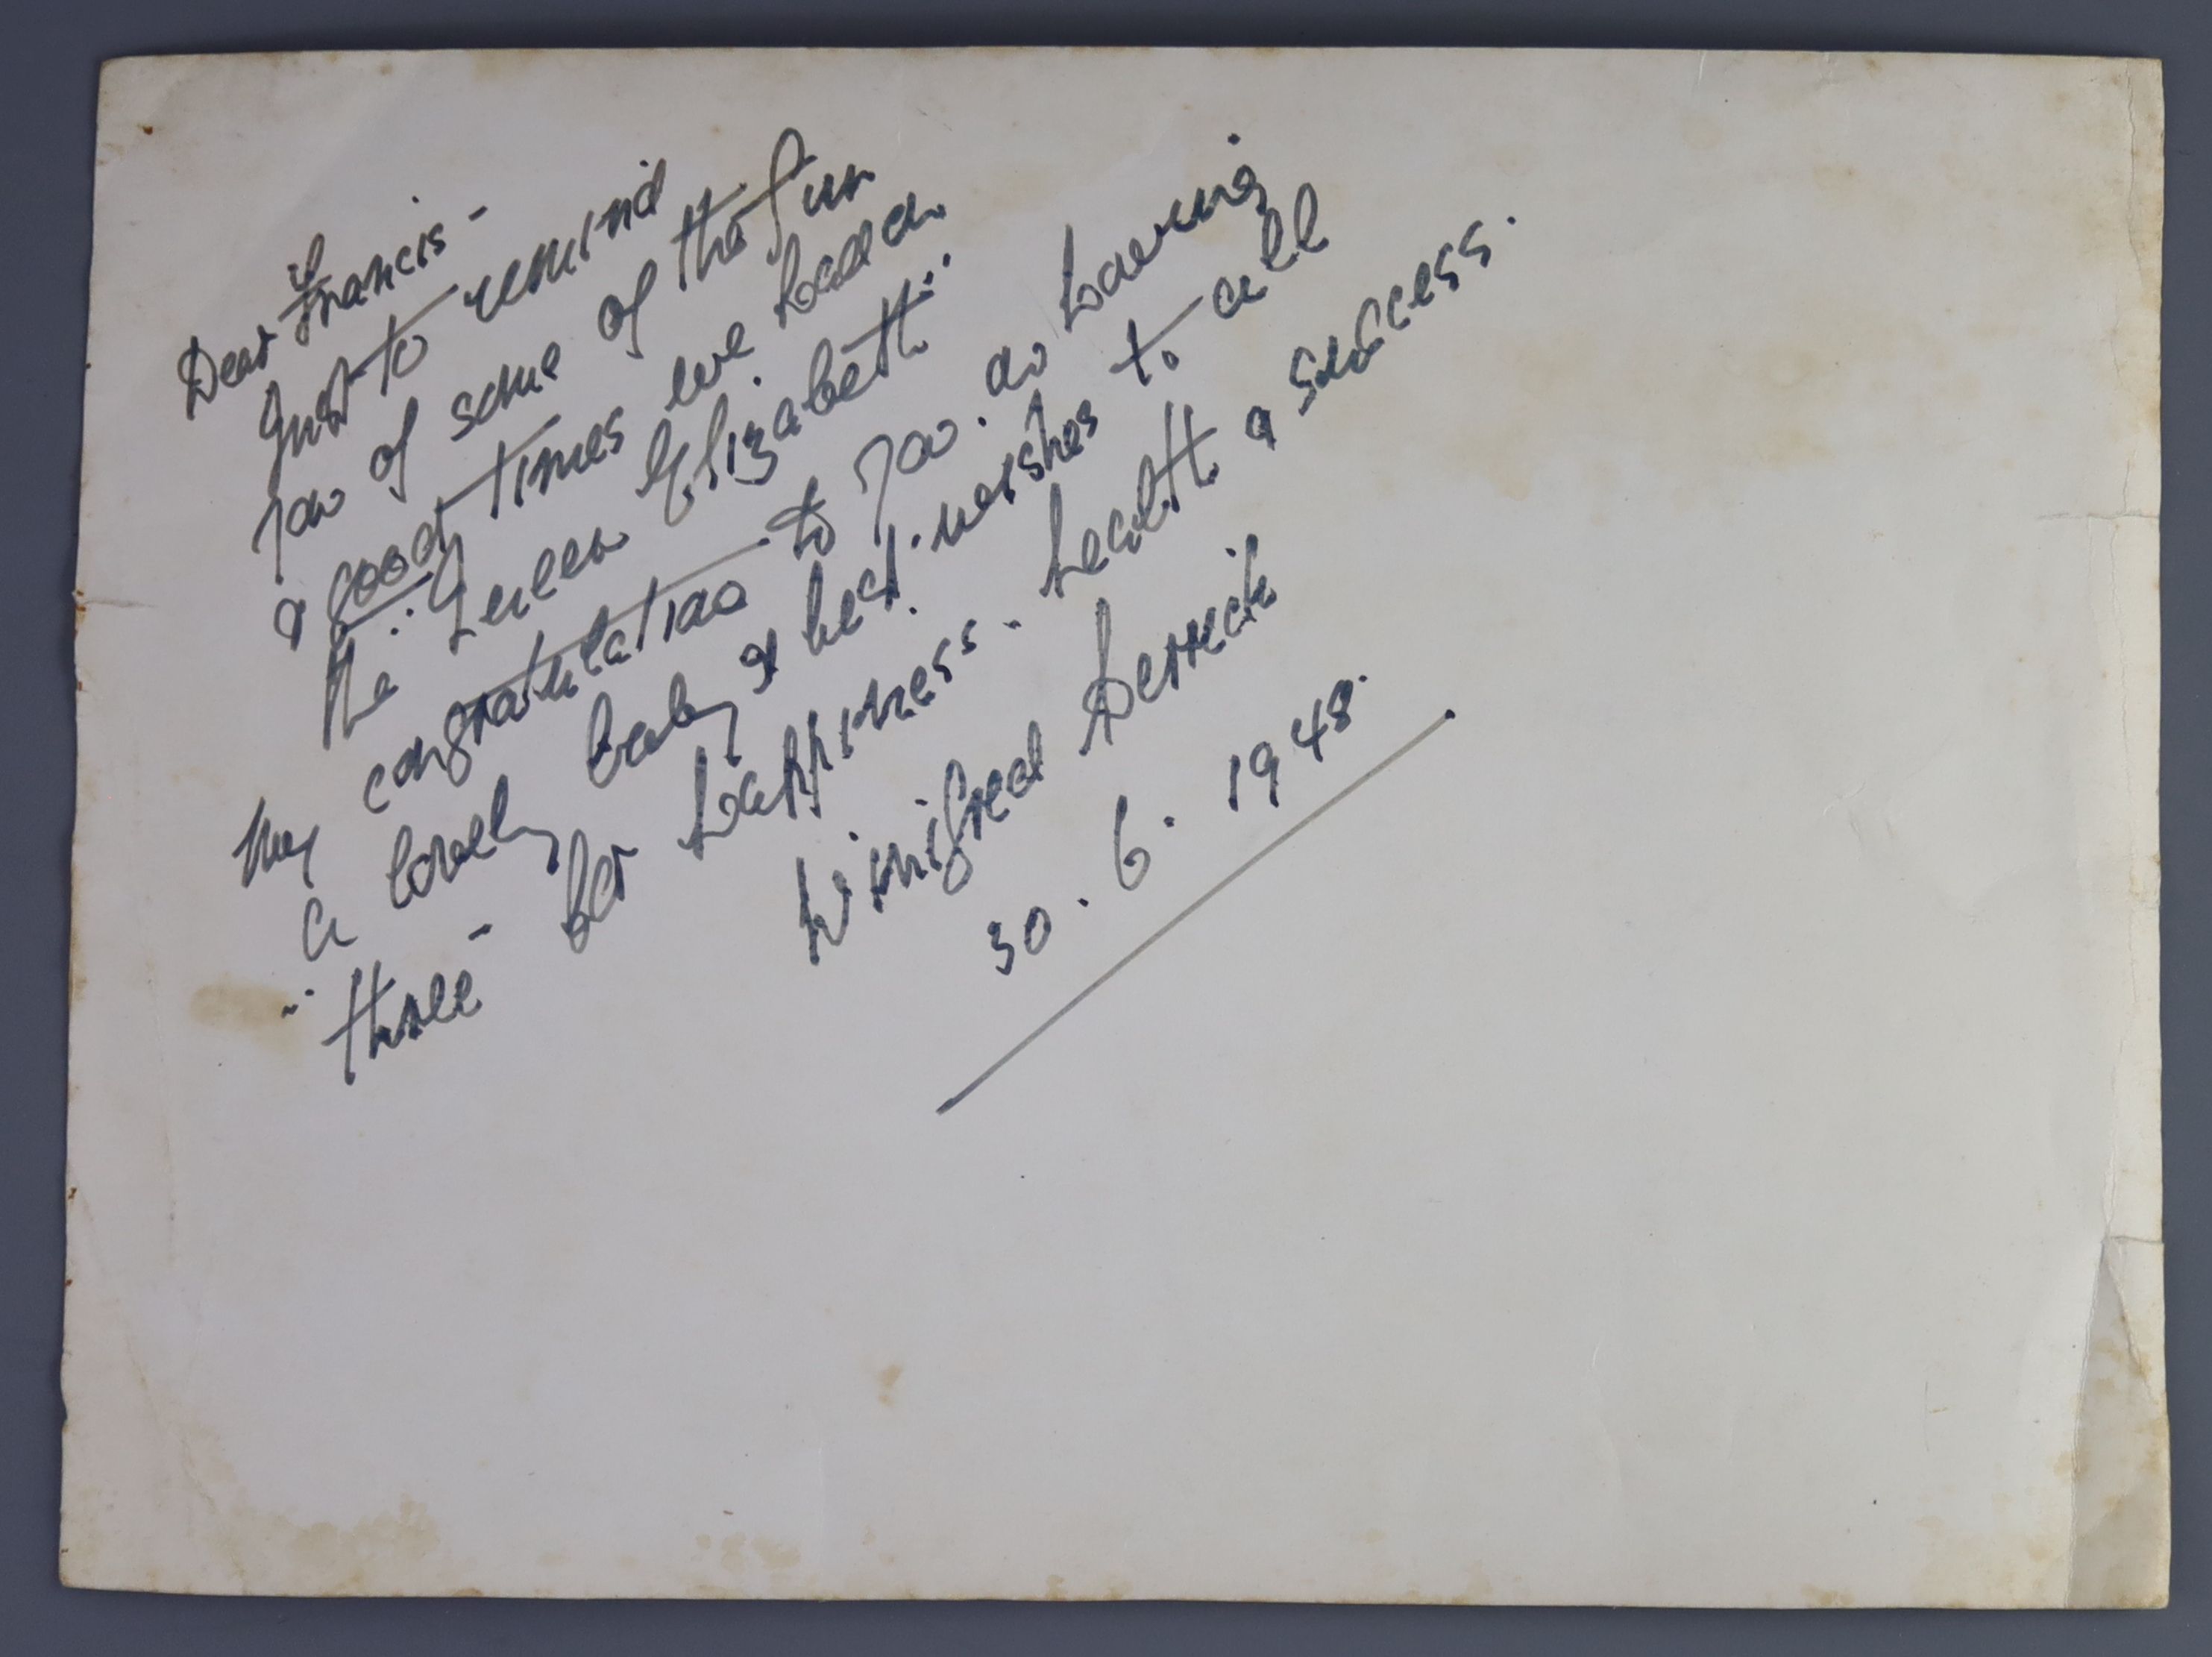 Dear Francis -
Just to remind
you of some of the fun
& good times we had on
the "Queen Elizabeth"
My congratulations to you on having
a lovely baby & best wishes to all
"three" for happiness. health & success.
Winifred Derrick
30. 6. 1948.